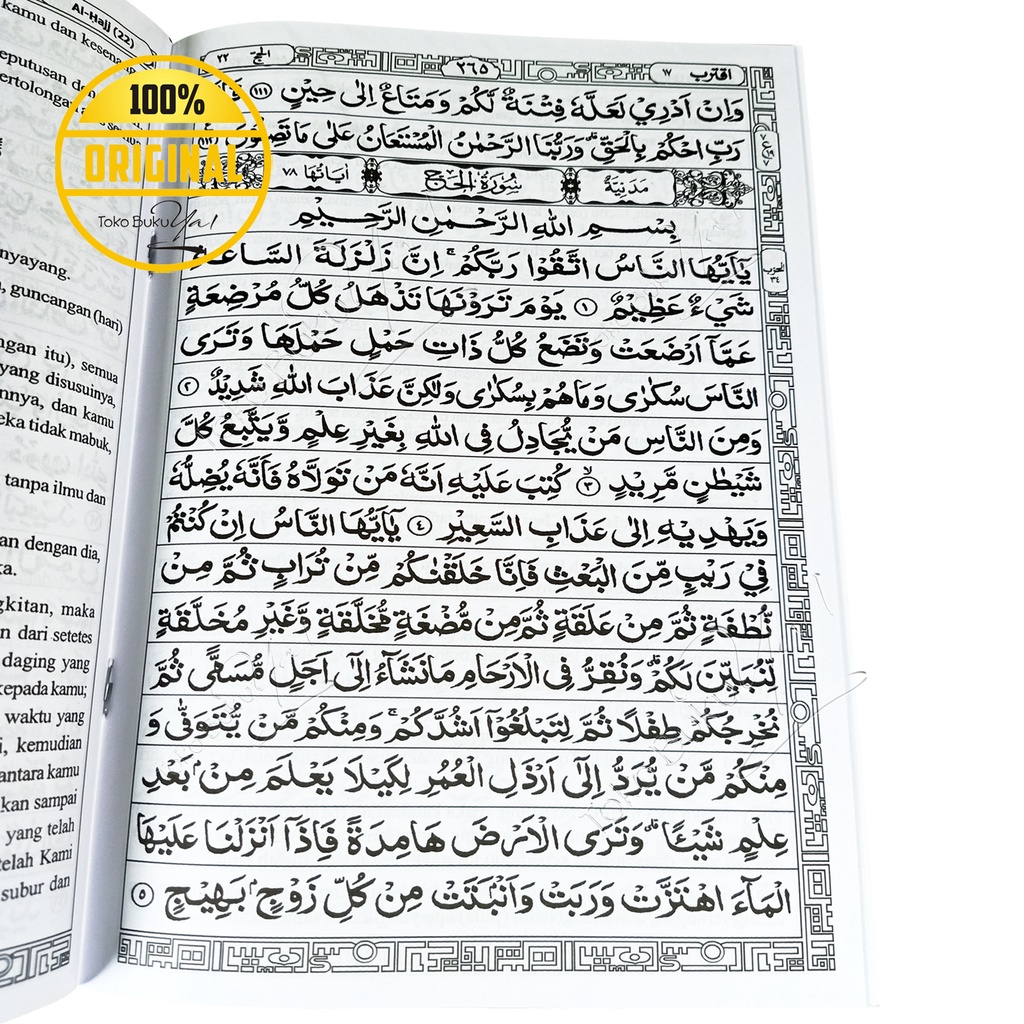 Al-Hajj (22)
kamu dan
eputusan
ertolongan
nyayang.
, guncangan (hari)
ngan itu), semua
yang disusuinya,
nnya, dan kamu
eka tidak mabuk,
tanpa ilmu dan
an dengan dia,
ka.
gkitan, maka
n dari setetes
daging yang
kepada kamu;
waktu yang
i, kemudian
antara kamu
kan sampai
yang telah
telah Kami
subur dan
100%
ORIGINAL
Toko Buku Yal
اقترب ١٧
٣٦٥
الحج ٢٢
وَاِنْ اَدْرِيْ لَعَلَّهٗ فِتْنَةٌ لَّكُمْ وَمَتَاعٌ اِلٰى حِيْنٍ ١١١
رَبِّ احْكُمْ بِالْحَقِّۗ وَرَبُّنَا الرَّحْمٰنُ الْمُسْتَعَانُ عَلٰى مَا تَصِفُوْنَ ١١٢
مَدَنِيَّةٌ
سُوْرَةُ الْحَجِّ
اٰيَاتُهَا ٧٨
بِسْــمِ اللّٰهِ الرَّحْمٰنِ الرَّحِيْـمِ
يٰٓاَيُّهَا النَّاسُ اتَّقُوْا رَبَّكُمْۚ اِنَّ زَلْزَلَةَ السَّاعَةِ
شَيْءٌ عَظِيْمٌ ١ يَوْمَ تَرَوْنَهَا تَذْهَلُ كُلُّ مُرْضِعَةٍ
عَمَّآ اَرْضَعَتْ وَتَضَعُ كُلُّ ذَاتِ حَمْلٍ حَمْلَهَا وَتَرَى
النَّاسَ سُكٰرٰى وَمَا هُمْ بِسُكٰرٰى وَلٰكِنَّ عَذَابَ اللّٰهِ شَدِيْدٌ ٢
وَمِنَ النَّاسِ مَنْ يُّجَادِلُ فِى اللّٰهِ بِغَيْرِ عِلْمٍ وَّيَتَّبِعُ كُلَّ
شَيْطٰنٍ مَّرِيْدٍۙ ٣ كُتِبَ عَلَيْهِ اَنَّهٗ مَنْ تَوَلَّاهُ فَاَنَّهٗ يُضِلُّهٗ
وَيَهْدِيْهِ اِلٰى عَذَابِ السَّعِيْرِ ٤ يٰٓاَيُّهَا النَّاسُ اِنْ كُنْتُمْ
فِيْ رَيْبٍ مِّنَ الْبَعْثِ فَاِنَّا خَلَقْنٰكُمْ مِّنْ تُرَابٍ ثُمَّ مِنْ
نُّطْفَةٍ ثُمَّ مِنْ عَلَقَةٍ ثُمَّ مِنْ مُّضْغَةٍ مُّخَلَّقَةٍ وَّغَيْرِ مُخَلَّقَةٍ
لِّنُبَيِّنَ لَكُمْۗ وَنُقِرُّ فِى الْاَرْحَامِ مَا نَشَاۤءُ اِلٰٓى اَجَلٍ مُّسَمًّى ثُمَّ
نُخْرِجُكُمْ طِفْلًا ثُمَّ لِتَبْلُغُوْٓا اَشُدَّكُمْۚ وَمِنْكُمْ مَّنْ يُّتَوَفّٰى وَ
مِنْكُمْ مَّنْ يُّرَدُّ اِلٰٓى اَرْذَلِ الْعُمُرِ لِكَيْلَا يَعْلَمَ مِنْۢ بَعْدِ
عِلْمٍ شَيْـًٔاۗ وَتَرَى الْاَرْضَ هَامِدَةً فَاِذَآ اَنْزَلْنَا عَلَيْهَا
الْمَاۤءَ اهْتَزَّتْ وَرَبَتْ وَاَنْۢبَتَتْ مِنْ كُلِّ زَوْجٍۢ بَهِيْجٍ ٥
الحزب
٣٤